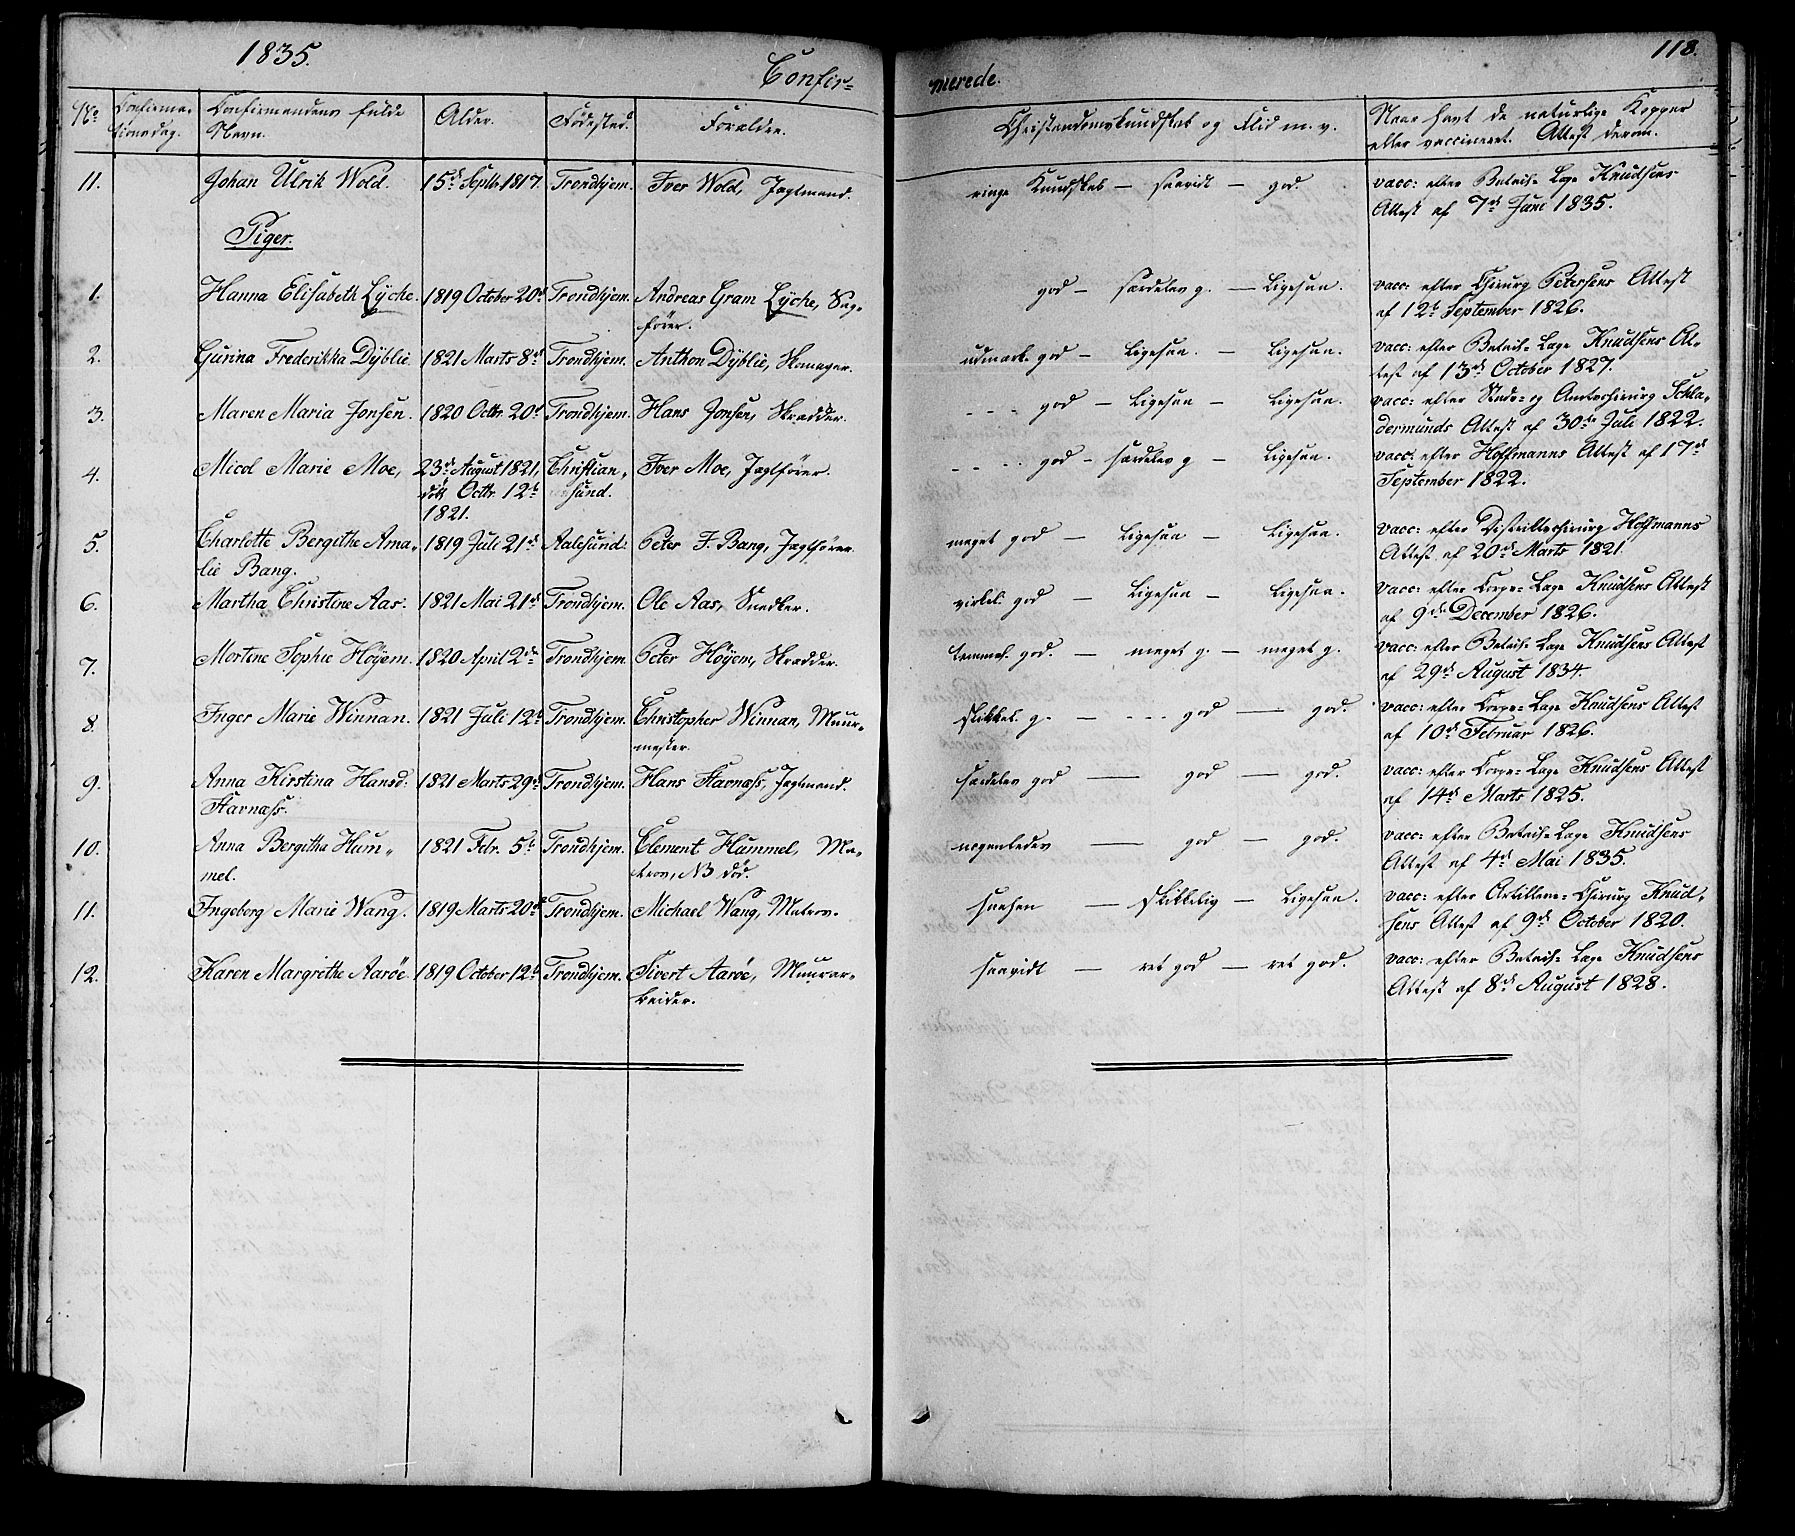 1835.
Confir=
merede.
118.
No.
Confirma-
tionsdag.
Confirmandens fulde
Navn.
Alder.
Födested.
Forældre.
Christendomskundskab og Flid m. v.
Naar havt de naturlige Kopper
eller vaccineret. Attest derom.
11. Johan Ulrik Wold. 15de Septb 1817. Trondhjem. Iver Wold, Jagtmand. ringe Kundskab — saavidt — god. vacc: efter Batail= Læge Knudsens
Attest af 7de Juni 1835.
Piger.
1. Hanna Elisabeth Lyche. 1819 October 20de Trondhjem. Andreas Gram Lyche, Sag-
fører. god — særdeles g. — Ligesaa. vacc: efter Chirurg Petersens Attest
af 12te September 1826.
2. Gurina Frederikka Dyblie. 1821 Marts 8de Trondhjem. Anthon Dyblie, Skomager. udmærk. god — Ligesaa. — Ligesaa. vacc: efter Batail= Læge Knudsens At-
test af 13de October 1827.
3. Maren Maria Jonsen. 1820 Octbr. 20de Trondhjem. Hans Jonsen, Skrædder. - - - god — Ligesaa — Ligesaa. vacc: efter Stads- og Amtschirurg Schla-
dermunds Attest af 30te Juli 1822.
4. Micol Marie Moe, 23de August 1821,
döbt Octbr. 12te
1821. Christian-
sund. Iver Moe, Jagtfører. - - - - god — særdeles g — Ligesaa. vacc: efter Hoffmanns Attest af 17de
September 1822.
5. Charlotte Bergitthe Ama-
lie Bang. 1819 Juli 21de Aalesund. Peter F. Bang, Jagtfører. meget god — Ligesaa — Ligesaa. vacc: efter Districtschirurg Hoffmanns
Attest af 20de Marts 1821.
6. Martha Christine Aas. 1821 Mai 21de Trondhjem. Ole Aas, Snedker. virkel. god — Ligesaa — Ligesaa. vacc: efter Corps= Læge Knudsens Attest
af 9de December 1826.
7. Mortine Sophie Höyem. 1820 April 2de Trondhjem. Peter Höyem, Skrædder. temmel. god. — meget g. — meget g. vacc: efter Batail= Læge Knudsens Attest
af 29de August 1834.
8. Inger Marie Winnan. 1821 Juli 12te Trondhjem. Christopher Winnan, Muur-
mester. skikkel. g. — - - - god — god. vacc: efter Corps= Læge Knudsens Attest
af 10de Februar 1826.
9. Anna Kirstina Hansd:
Starnæss. 1821 Marts 29de Trondhjem. Hans Starnæss, Jagtmand. særdeles god — god — god. vacc: efter Corps= Læge Knudsens Attest
af 14de Marts 1825.
10. Anna Bergitha Hum-
mel. 1821 Febr. 5te Trondhjem. Clement Hummel, Ma-
tros, NB död. nogenledes — god — god. vacc: efter Batail= Læge Knudsens
Attest af 4de Mai 1835.
11. Ingeborg Marie Wang. 1819 Marts 20de Trondhjem. Michael Wang, Matros. saasaa — skikkelig — Ligesaa. vacc: efter Artillerie= Chirurg Knud-
sens Attest af 9de October 1820.
12. Karen Margrethe Aaröe 1819 October 12te Trondhjem. Sivert Aaröe, Muurar-
beider. saavidt — ret god — ret god. vacc: efter Batail= Læge Knudsens
Attest af 8de August 1828.